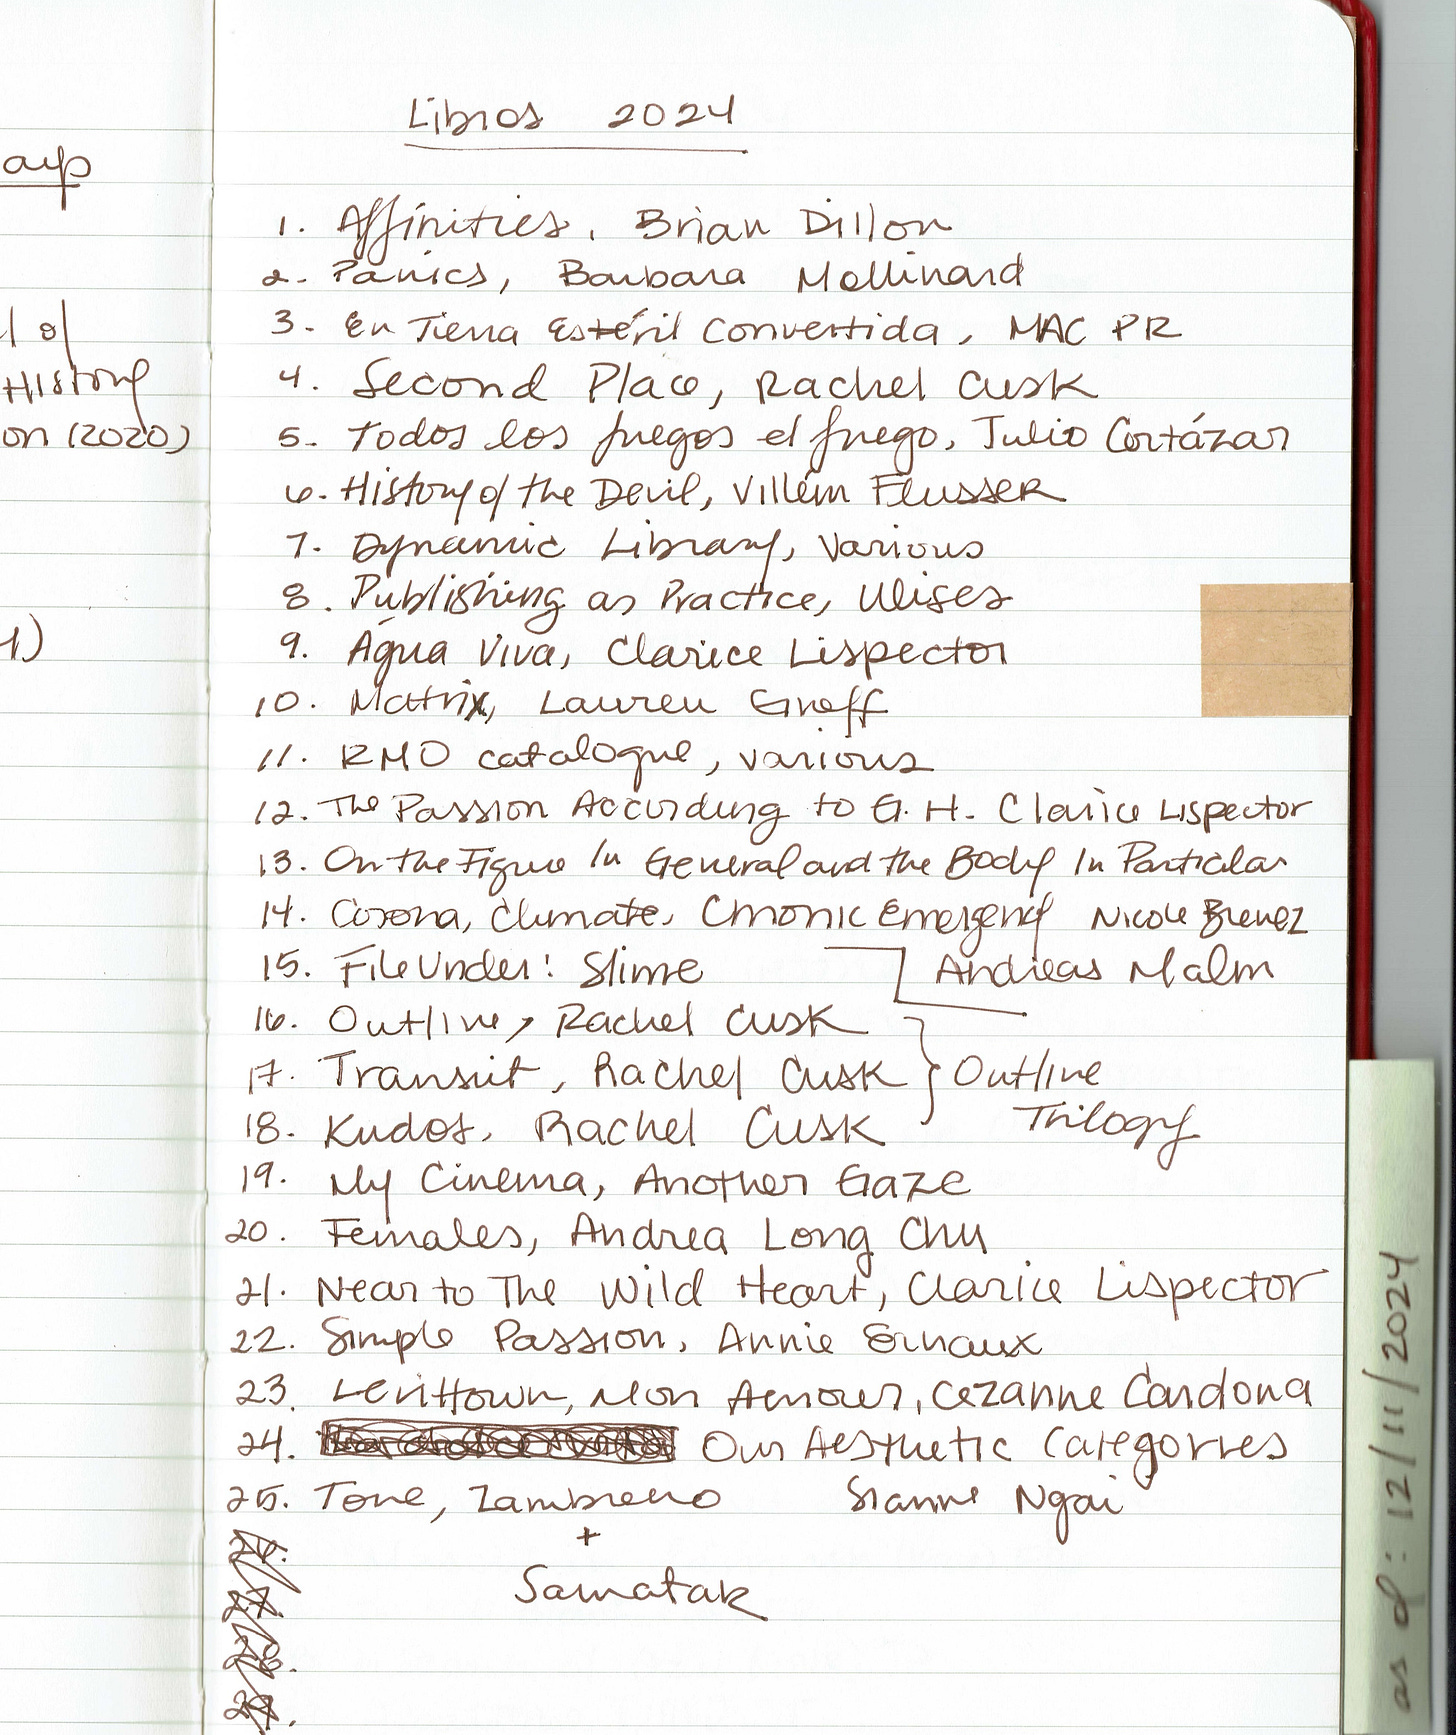 Libros 2024
1. Affinities, Brian Dillon
2. Panics, Barbara Mollinard
3. En Tierra Estéril Convertida, MAC PR
4. Second Place, Rachel Cusk
5. Todos los fuegos el fuego, Julio Cortázar
6. History of the Devil, Villém Flusser
7. Dynamic Library, Various
8. Publishing as Practice, Ulises
9. Água Viva, Clarice Lispector
10. Matrix, Lauren Groff
11. RMO catalogue, various
12. The Passion According to G.H. Clarice Lispector
13. On the Figure In General and the Body In Particular
14. Corona, Climate, Chronic Emergency Nicole Brenez
15. File Under: Slime Andreas Malm
16. Outline, Rachel Cusk
17. Transit, Rachel Cusk } Outline
18. Kudos, Rachel Cusk Trilogy
19. My Cinema, Another Gaze
20. Females, Andrea Long Chu
21. Near to The Wild Heart, Clarice Lispector
22. Simple Passion, Annie Ernaux
23. Levittown, Mon Amour, Cezanne Cardona
24. Our Aesthetic Categories
25. Tone, Zambreno Sianne Ngai
+
Samatar
of
History
on (2020)
1)
as of: 12/11/2024